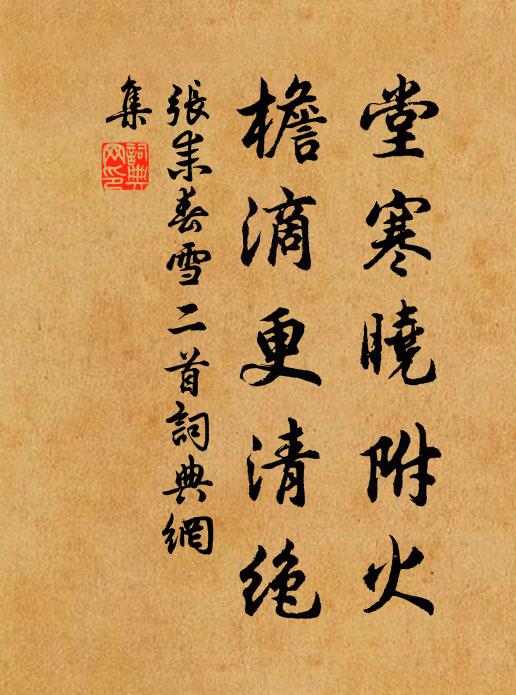 堂寒曉附火
檐滴更清絶
張耒春雪二首詞典網
集
詞典網印